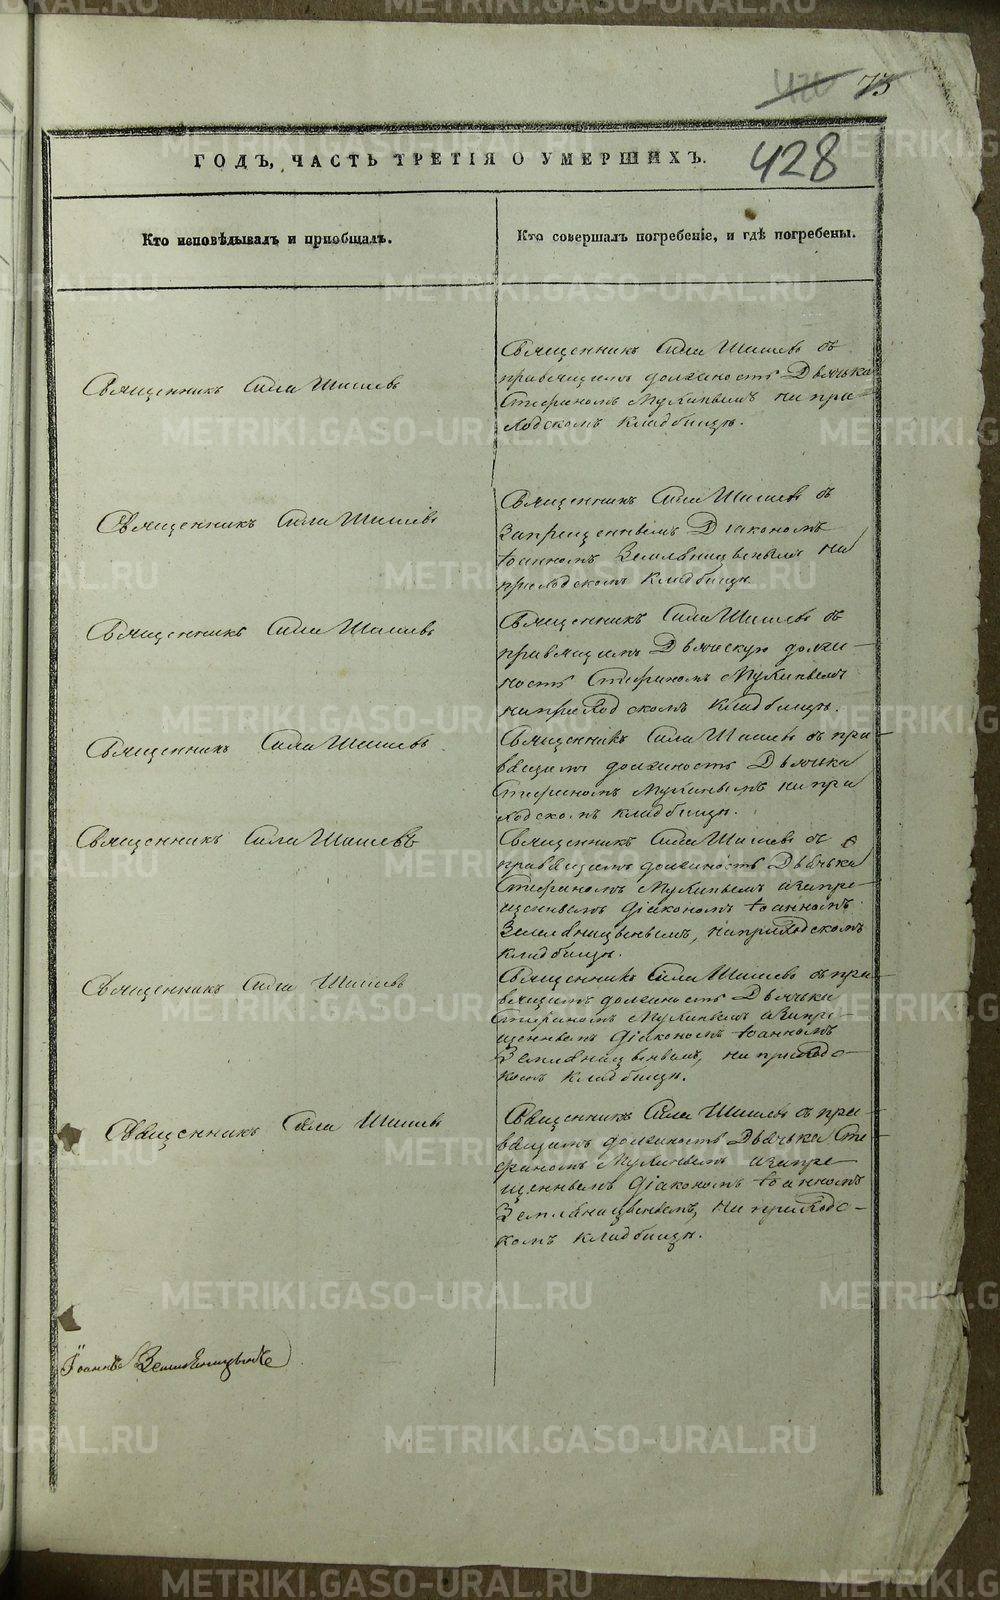 428
ГОДЪ, ЧАСТЬ ТРЕТІЯ О УМЕРШИХЪ.
Кто исповѣдывалъ и пріобщалъ.
Кто совершалъ погребеніе, и гдѣ погребены.
Священникъ Сила Шишевъ
Священникъ Сила Шишевъ съ
правящимъ должность Дьячька
Стефаномъ Мухинымъ на при-
ходскомъ кладбищѣ.
Священникъ Сила Шишевъ
Священникъ Сила Шишевъ съ
Запрещеннымъ Діакономъ
Іоанномъ Земляницынымъ на
приходскомъ кладбищѣ
Священникъ Сила Шишевъ
Священникъ Сила Шишевъ съ
правящимъ Дьяческую долж-
ность Стефаномъ Мухинымъ
на приходскомъ кладбищѣ.
Священникъ Сила Шишевъ
Священникъ Сила Шишевъ съ пра-
вящимъ должность Дьячька
Стефаномъ Мухинымъ на при
ходскомъ кладбищѣ.
Священникъ Сила Шишевъ
Священникъ Сила Шишевъ съ
правящимъ должность Дьячька
Стефаномъ Мухинымъ и запре-
щеннымъ діакономъ Іоанномъ
Земляницынымъ, на приходскомъ
кладбищѣ.
Священникъ Сила Шишевъ
Священникъ Сила Шишевъ съ пра-
вящимъ должность Дьячька
Стефаномъ Мухинымъ и запре-
щеннымъ діакономъ Іоанномъ
Земляницынымъ, на приходс-
комъ кладбищѣ.
Священникъ Сила Шишевъ
Священникъ Сила Шишевъ съ пра-
вящимъ должность Дьячька Сте-
фаномъ Мухинымъ и запре-
щеннымъ діакономъ Іоанномъ
Земляницынымъ, на приходс-
комъ кладбищѣ.
Іоаннъ Земляницынъ
METRIKI.GASO-URAL.RU